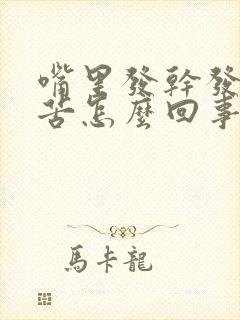 嘴里發幹發
苦怎麼回事
馬卡龍